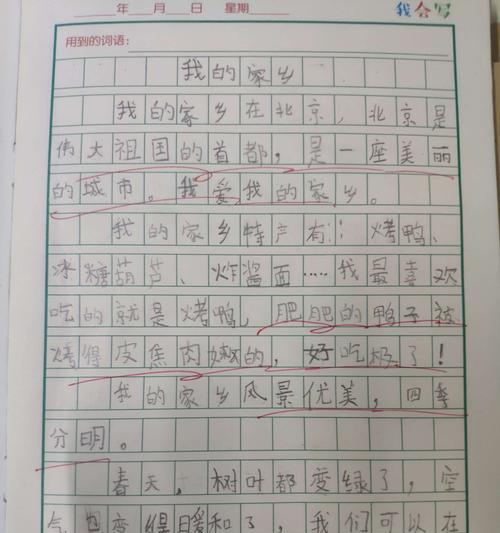 年 月 日 星期 我会写
用到的词语:
我的家乡
我的家乡在北京,北京是
伟大祖国的首都,是一座美丽
的城市。我爱我的家乡。
我的家乡特产有!烤鸭、
冰糖葫芦、炸酱面……我最喜欢
吃的就是烤鸭,肥肥的鸭子被
烤得皮焦肉嫩的,好吃极了!
我的家乡风景优美,四季
分明。
春天,树叶都变绿了,空
气也变得暖和了,我们可以在